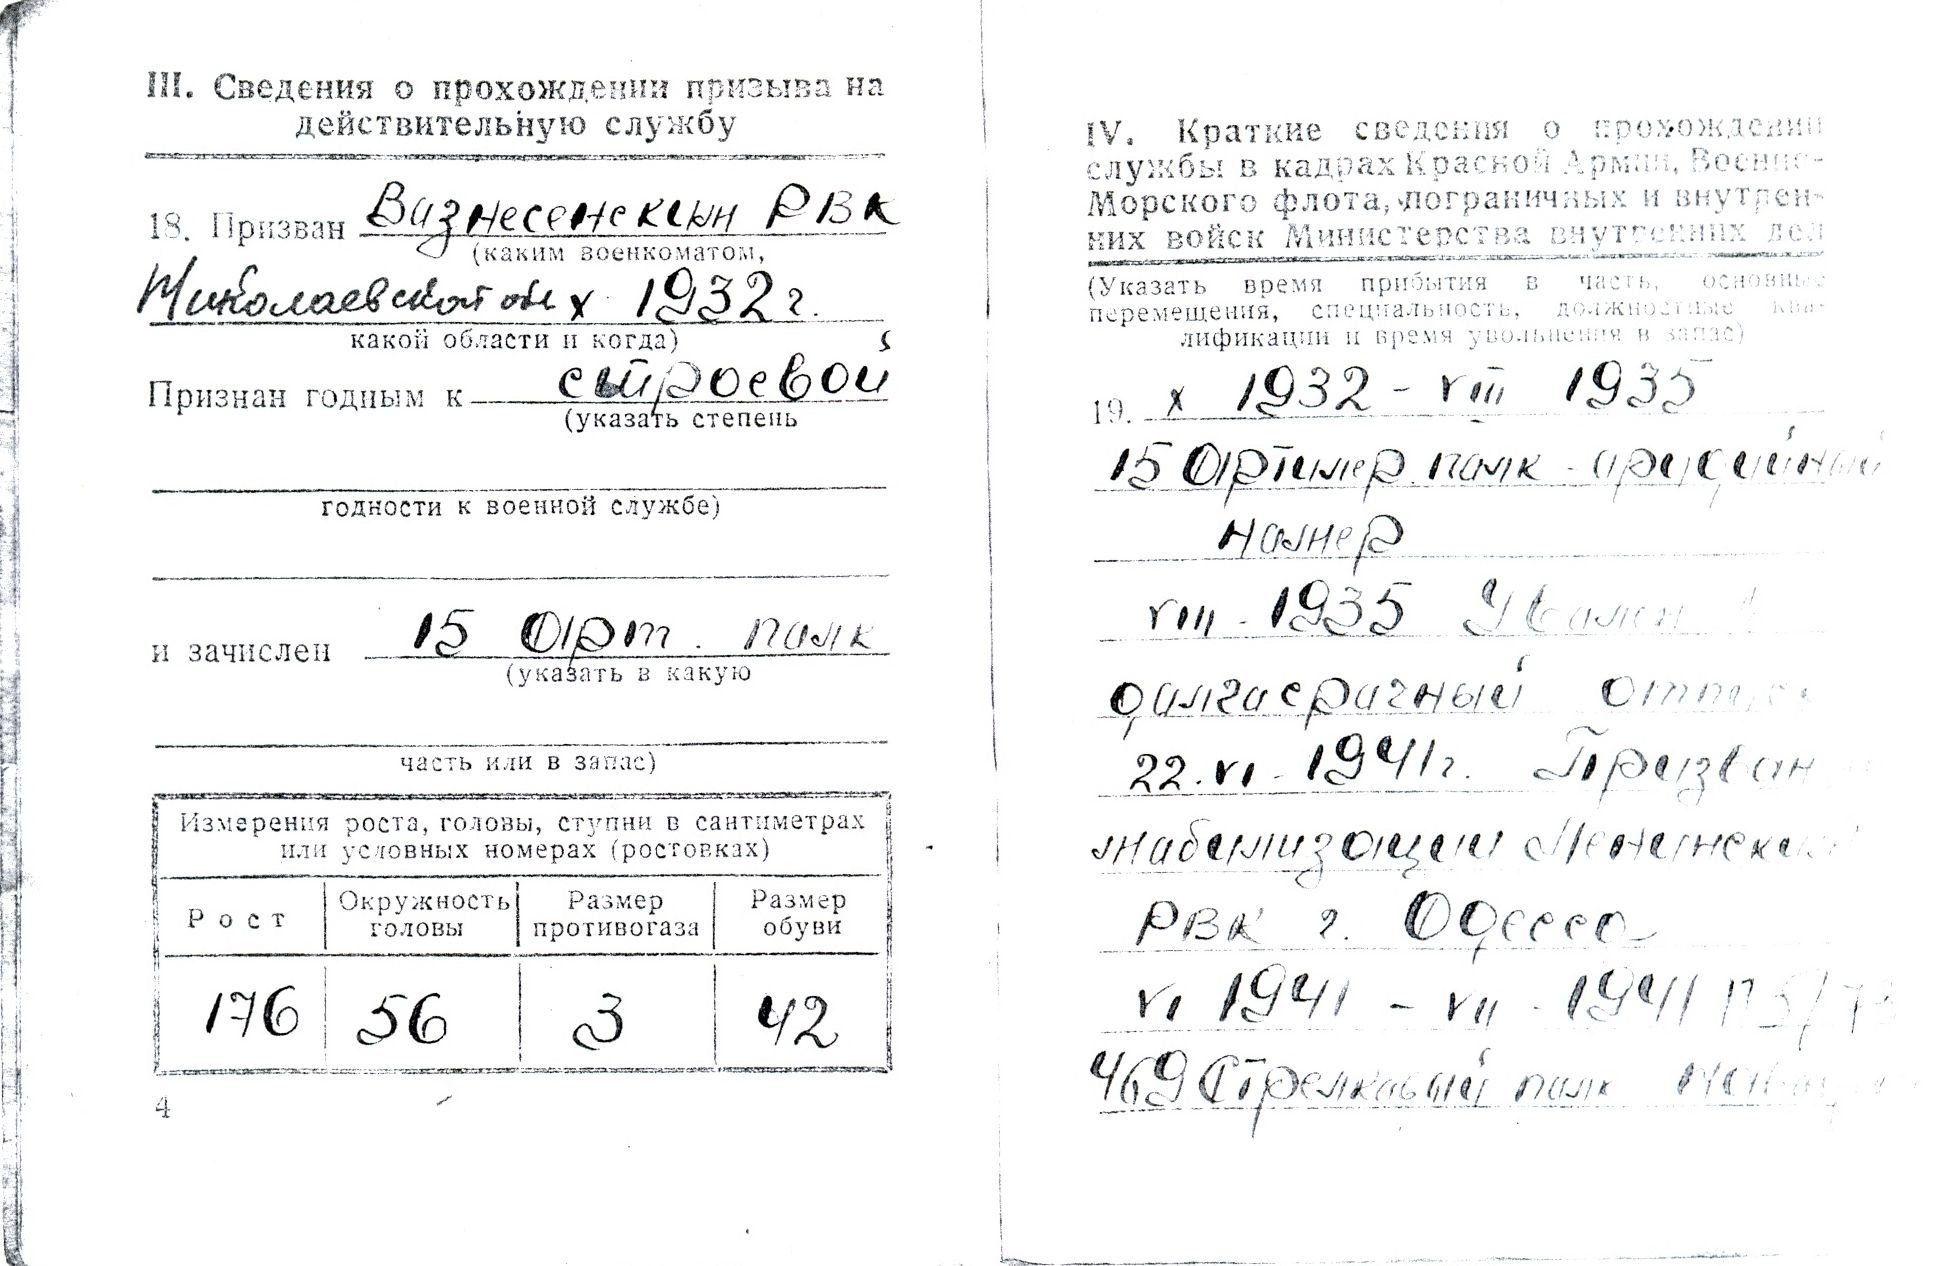 III. Сведения о прохождении призыва на
действительную службу
18. Призван Вазнесенским РВК
(каким военкоматом,
Николаевской обл X 1932 г.
какой области и когда)
Признан годным к строевой
(указать степень
годности к военной службе)
и зачислен 15 Арт. палк
(указать в какую
часть или в запас)
Измерения роста, головы, ступни в сантиметрах
или условных номерах (ростовках)
Рост Окружность головы Размер противогаза Размер обуви
176 56 3 42
4
IV. Краткие сведения о прохождении
службы в кадрах Красной Армии, Военно-
Морского флота, пограничных и внутрен-
них войск Министерства внутренних дел
(Указать время прибытия в часть, основные
перемещения, специальность, должностные ква-
лификации и время увольнения в запас)
19. X 1932 - VIII 1935
15 Артилер. палк - арудийный
намер
VIII - 1935 Увален в
далгасрачный отпуск
22. VI - 1941 г. Призван
мабилизации Ленинским
РВК г. Одесса
VI 1941 - VII - 1941
469 Стрелкавый палк